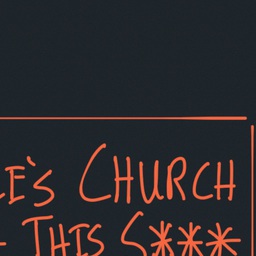 CHURCH
THIS S***